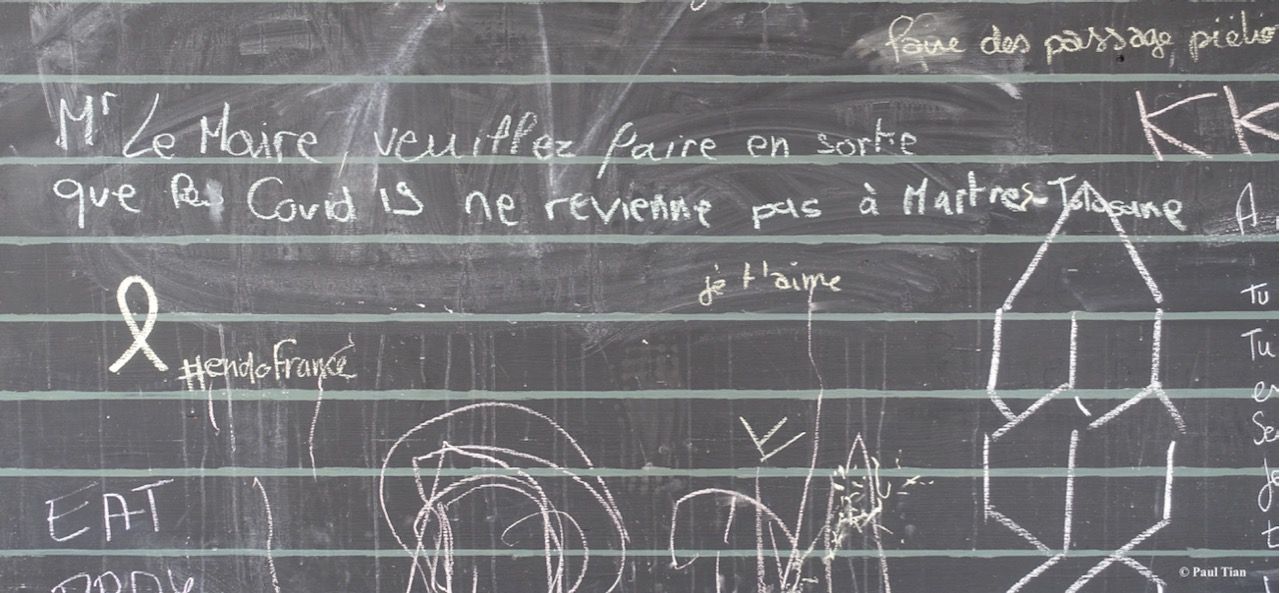 faire des passage piéto
Mr Le Maire, veuillez faire en sorte
KK
que les Covid 19 ne revienne pas à Martres-Tolosane
A
je t'aime
Tu
#endoFrance
Tu
EAT
© Paul Tian